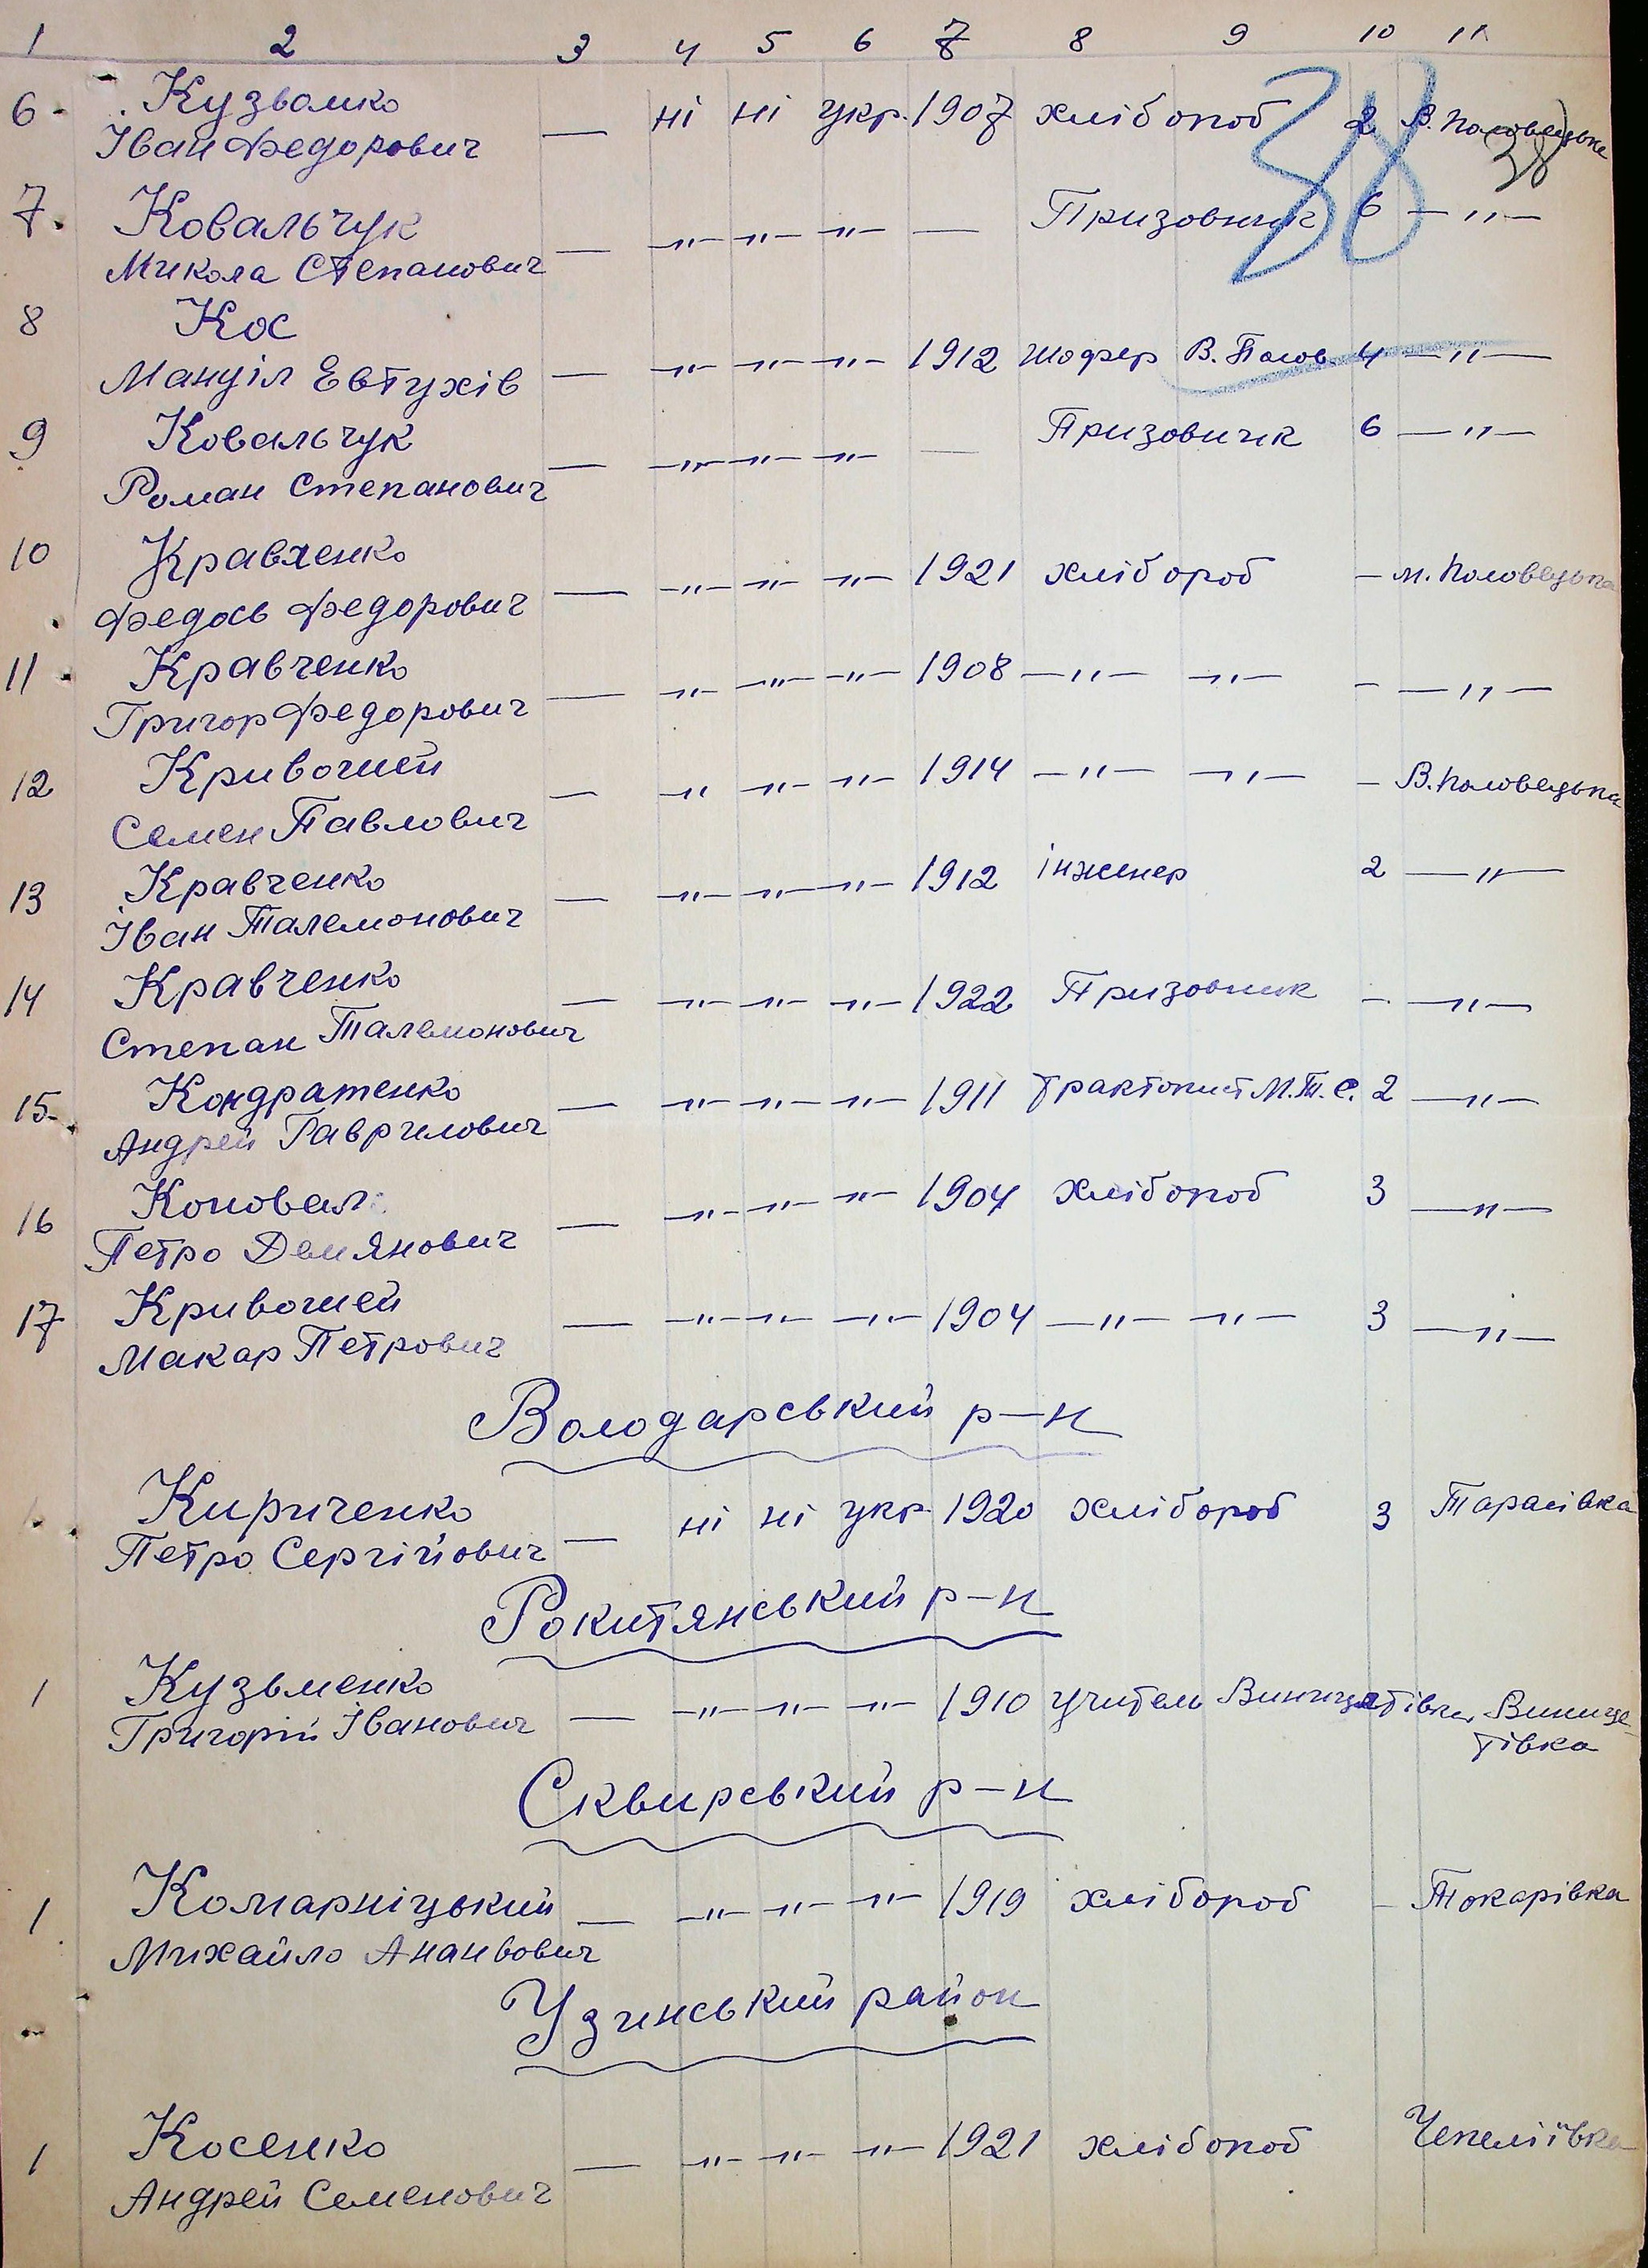 1 2 3 4 5 6 7 8 9 10 11
38
38
6. Кузвомко — ні ні укр. 1907 хлібороб 2 В. Половецьке
Іван Федорович
7. Ковальчук — —"— —"— —"— — Призовник 6 —"—
Микола Степанович
8 Кос
Мануіл Евтухів — —"— —"— —"— 1912 шофер В. Полов. 4 —"—
9 Ковальчук — —"— —"— —"— — Призовник 6 —"—
Роман Степанович
10 Кравченко — —"— —"— —"— 1921 хлібороб — М. Половецька
Федось Федорович
11 Кравченко — —"— —"— —"— 1908 —"— —"— — —"—
Григор Федорович
12 Кривошей — —"— —"— —"— 1914 —"— —"— — В. Половецька
Семен Павлович
13 Кравченко — —"— —"— —"— 1912 інженер 2 —"—
Іван Талемонович
14 Кравченко — —"— —"— —"— 1922 Призовник — —"—
Степан Талемонович
15. Кондратенко — —"— —"— —"— 1911 тракторист М.Т.С. 2 —"—
Андрей Гаврилович
16 Коновал — —"— —"— —"— 1904 хлібороб 3 —"—
Петро Демянович
17 Кривошей — —"— —"— —"— 1904 —"— —"— 3 —"—
Макар Петрович
Володарський р-н
1. Кириченко — ні ні укр. 1920 хлібороб 3 Тарасівка
Петро Сергійович
Рокитянський р-н
1 Кузьменко — —"— —"— —"— 1910 учитель Виницятівка, Винице-
Григорій Іванович тівка
Сквирський р-н
1 Комарніцький — —"— —"— —"— 1919 хлібороб — Токарівка
Михайло Ананвович
Узинський район
1 Косенко — —"— —"— —"— 1921 хлібороб Чепеліївка
Андрей Семенович